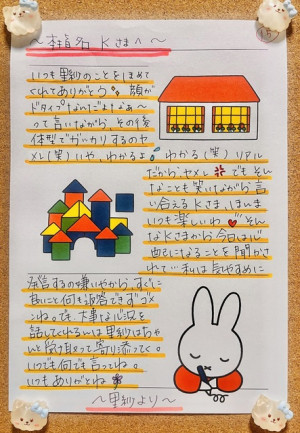 〜本指名 Kさまへ〜
いつも里紗のことをほめて
くれてありがとう 顔が
ドタイプなんじゃよなぁ〜
って言いながら、その後
体型でガッカリするのヤ
メレ(笑)いや、わかるよ わかる(笑)リアル
だから、ヤメレ でもそん
なことも笑いながら言
い合えるKさま、ほんま
いつも楽しいわ そん
なKさまから今日は心
配になることを聞かさ
れて…私は長やすめに
発信するの嫌いやから、すぐに
言いこと何も返答できずゴメ
ンね。でも、大事なお話を
話してくれるんは里紗はちゃ
んと受け取って寄り添ってく。
いつでも何でも言ってね。
いつもありがとね
〜里紗より〜